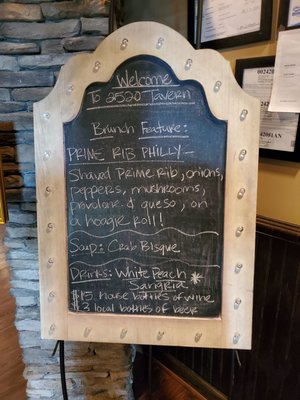 Welcome
To 2520 Tavern
Brunch Feature:
PRIME RIB PHILLY-
Shaved Prime rib, onions,
peppers, mushrooms,
provolone & queso, on
a hoagie roll!
Soup: Crab Bisque
Drinks: White Peach
Sangria
$15 house bottles of wine
$3 local bottles of beer